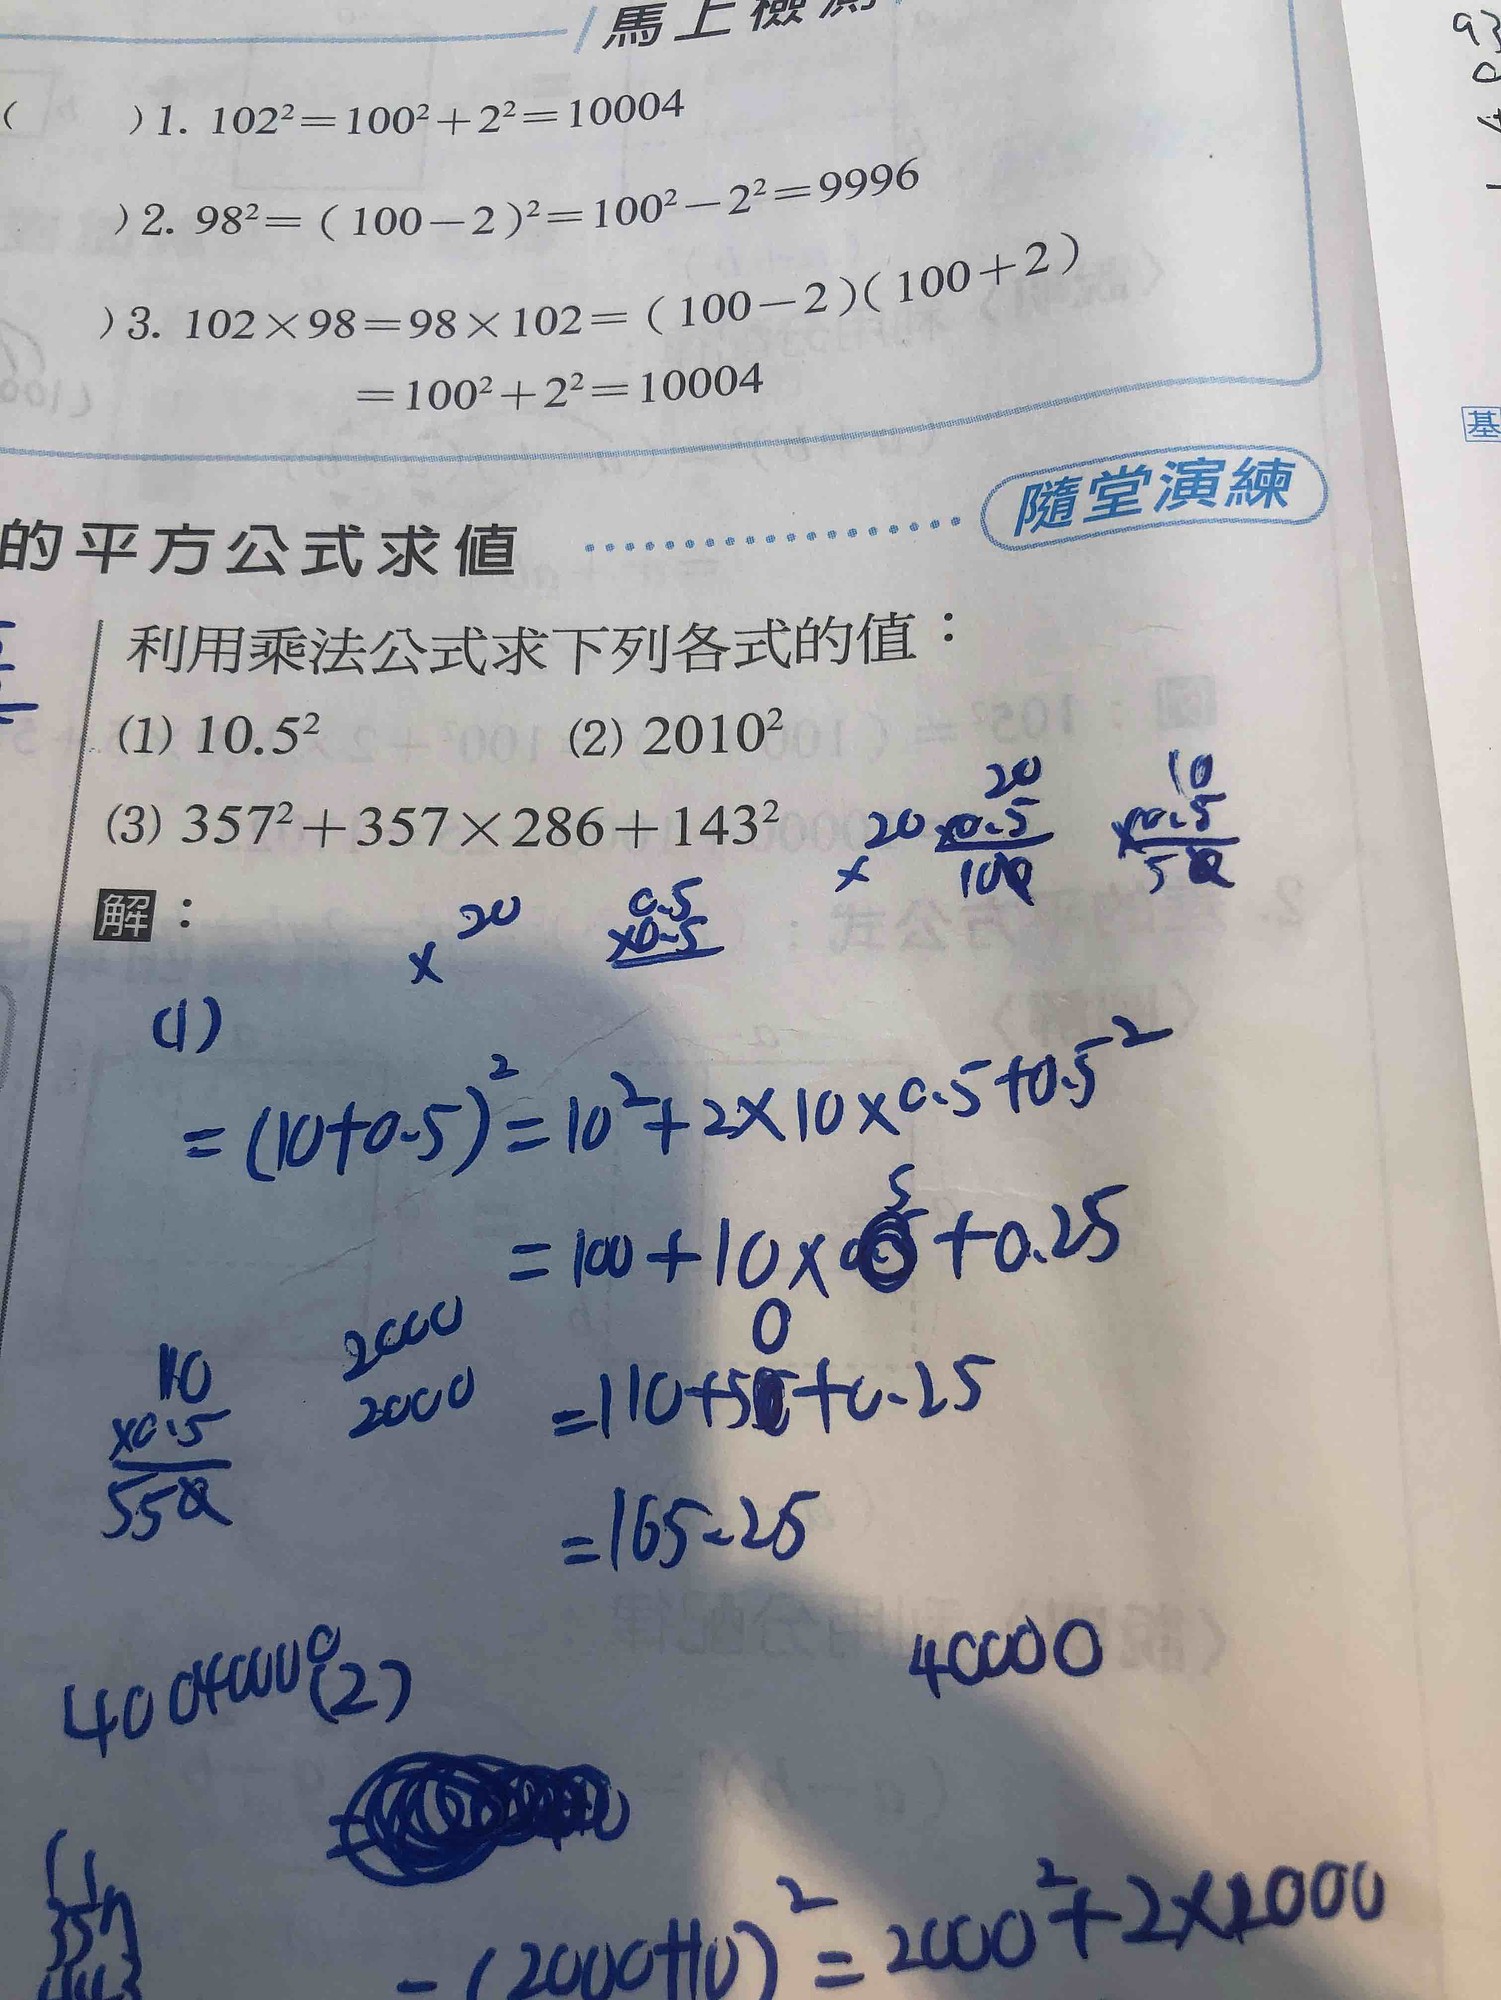 馬上檢測
( )1. 102²=100²+2²=10004
)2. 98²=(100-2)²=100²-2²=9996
)3. 102×98=98×102=(100-2)(100+2)
=100²+2²=10004
基
隨堂演練
的平方公式求值
利用乘法公式求下列各式的值：
(1) 10.5² (2) 2010²
(3) 357²+357×286+143²
20
×0.5
10
10
×0.5
5
20
×
解：
20
×
0.5
×0.5
(1)
=(10+0.5)²=10²+2×10×0.5+0.5²
=100+10× 5 +0.25
110
×0.5
55
2000
2000
=110+50+0.25
=165.25
(2)
40000
=(2000+10)²=2000²+2×2000